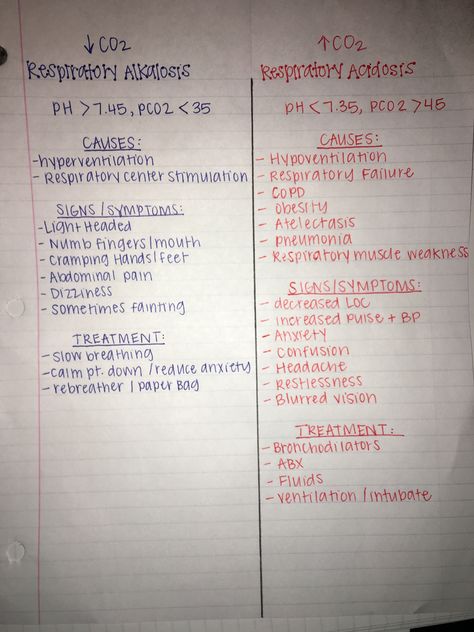 ↓CO2
Respiratory Alkalosis
PH > 7.45, PCO2 < 35
CAUSES:
-hyperventilation
- Respiratory center stimulation
SIGNS/SYMPTOMS:
-Light Headed
- Numb fingers/mouth
- Cramping Hands/feet
- Abdominal pain
- Dizziness
- sometimes fainting
TREATMENT:
- slow breathing
- calm pt. down / reduce anxiety
- rebreather / paper Bag
↑CO2
Respiratory Acidosis
PH < 7.35, PCO2 > 45
CAUSES:
- Hypoventilation
- Respiratory failure
- COPD
- Obesity
- Atelectasis
- pneumonia
- Respiratory muscle weakness
SIGNS/SYMPTOMS:
- decreased LOC
- increased pulse + BP
- Anxiety
- confusion
- Headache
- Restlessness
- Blurred vision
TREATMENT:
- Bronchodilators
- ABX
- Fluids
- ventilation / intubate